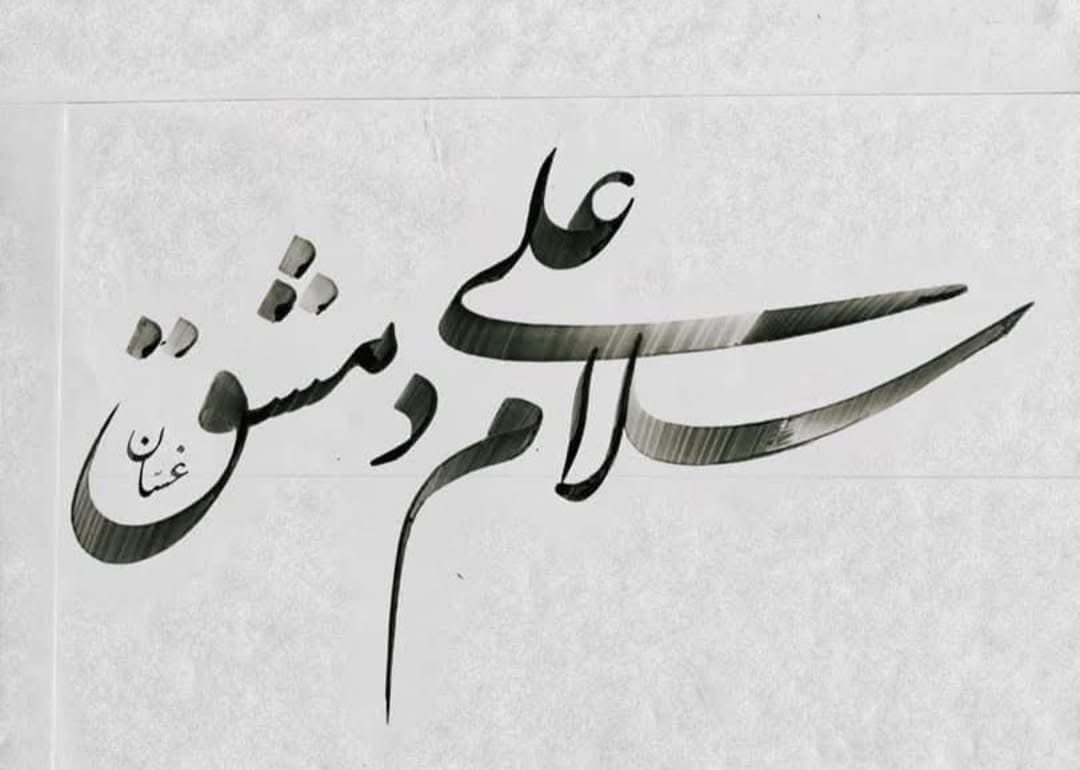 سلام على دمشق
غسّان